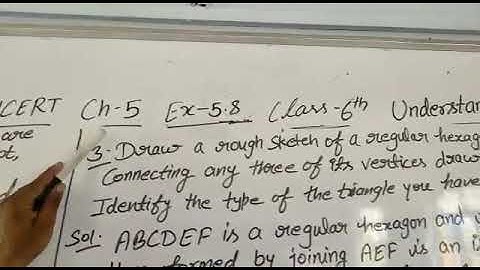 CERT Ch-5 Ex-5.8 Class-6th Understan
are
3. Draw a rough sketch of a regular hexag
Connecting any three of its vertices draw
Identify the type of the triangle you have
Sol: ABCDEF is a regular hexagon and
formed by joining AEF is an